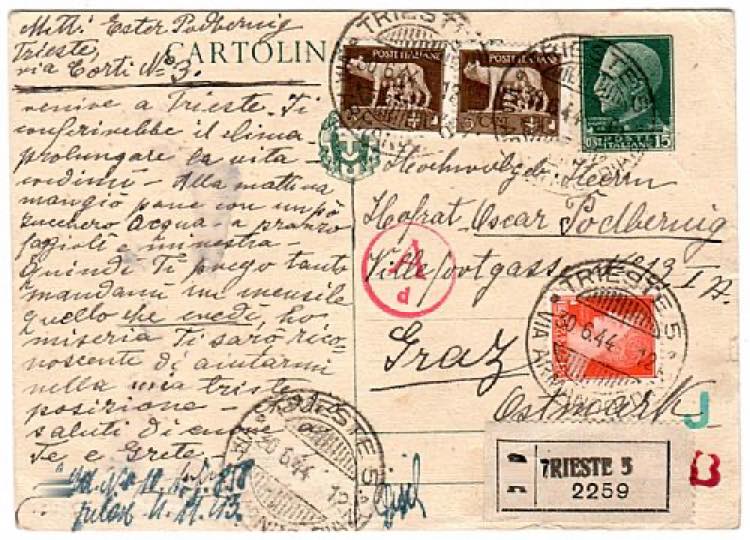 Mitt: Ester Podbernig
Trieste,
via Corti No 3.
CARTOLINA
venire a Trieste. Ti
conferirebbe il clima
prolungare la vita
credimi - Alla mattina
mangio pane con un pò
zucchero acqua - a pranzo
fagioli e minestra -
Quindi Ti prego tanto
mandami un mensile
quello che credi, ho
miseria Ti sarò rico-
noscente di aiutarmi
nella mia triste
posizione -
saluti di cuore a
Te e Grete.
POSTE ITALIANE
POSTE ITALIANE
POSTE
ITALIANE
15
Hochwolgeb. Herrn
Hofrat Oscar Podbernig
No 13 I
Graz
Ostmark
A
d
TRIESTE 5
30 6.44
TRIESTE 5
TRIESTE 5
30 6.44 12
TRIESTE 5
30 6.44 12
TRIESTE 5
2259
J
B